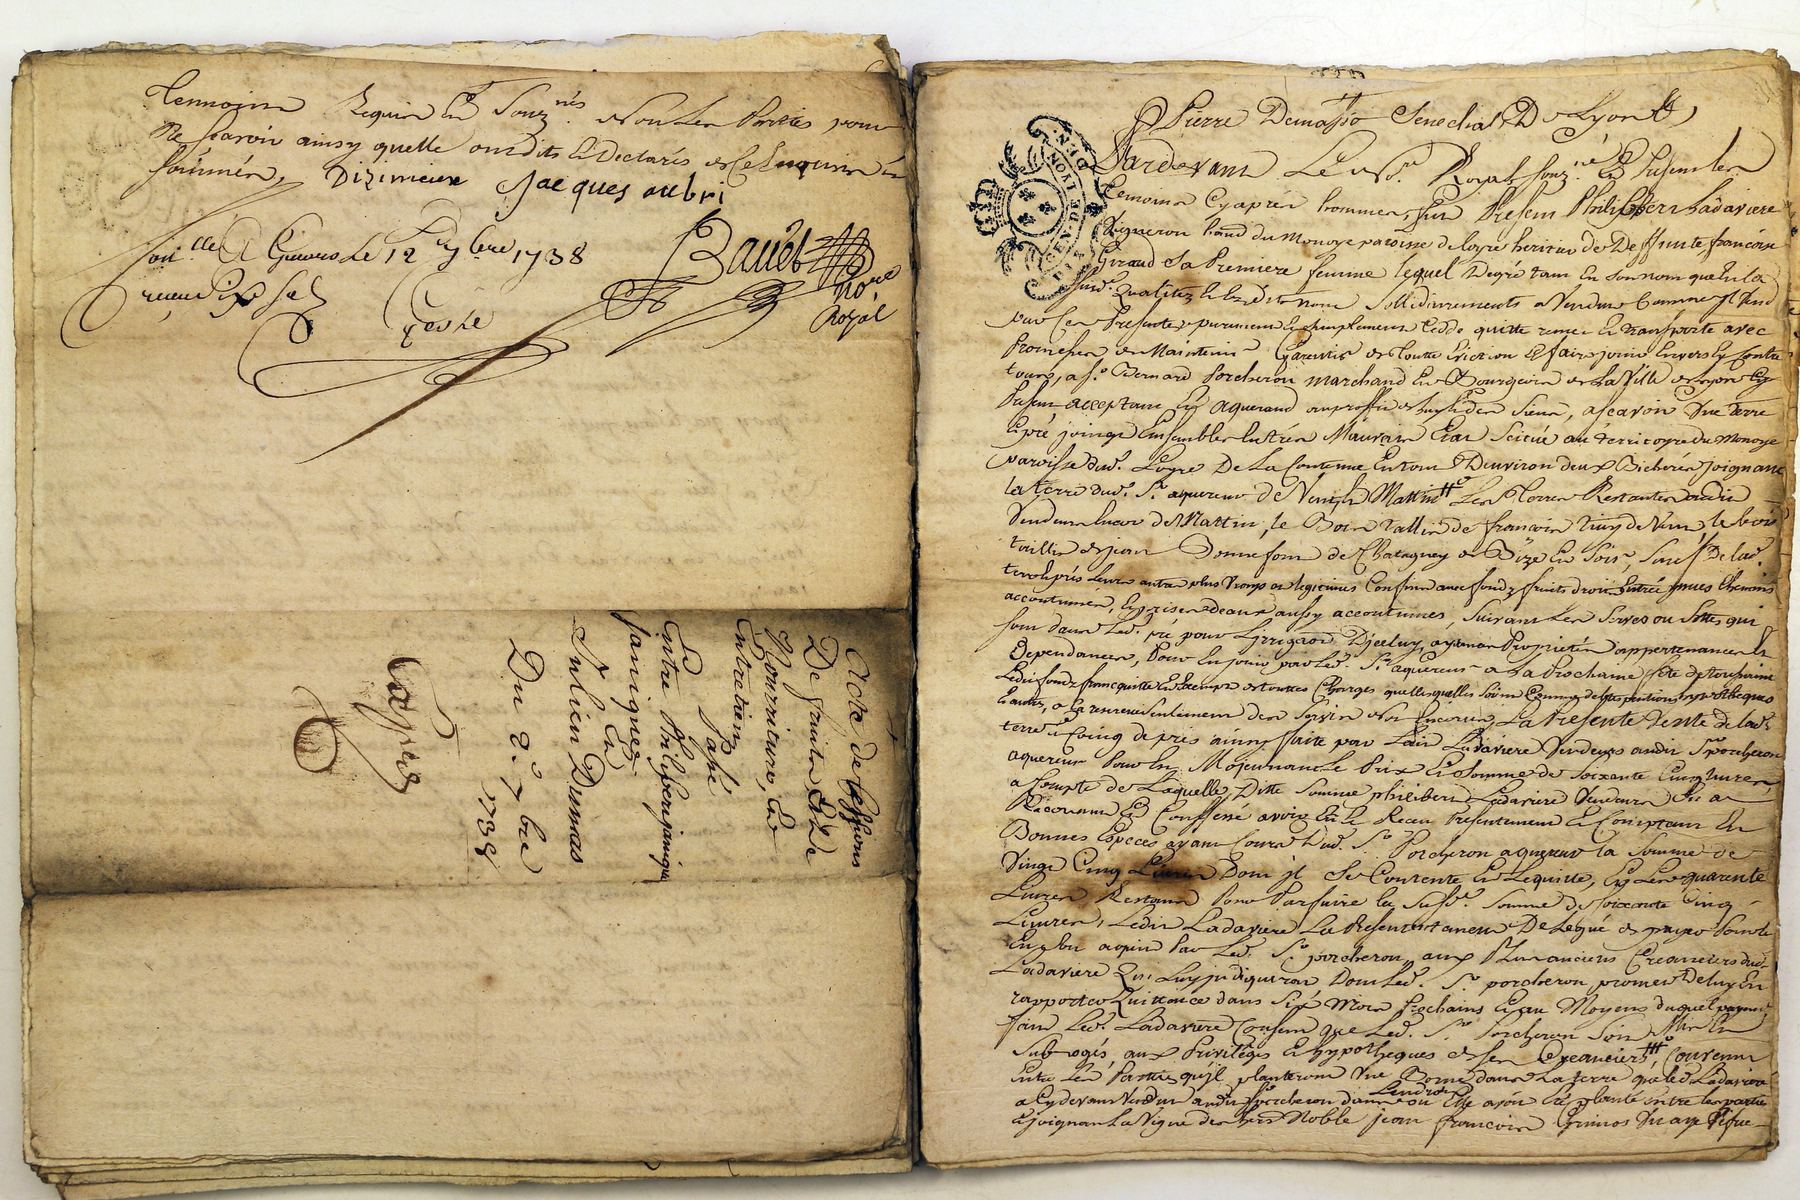 temoins Requis et Souz.nés Non les Parties pour
ne savoir ainsy quelle ont dits et Declarés de ce Enquis et
sommés, Dizimieux Jacques aubri
Con.llé A Givors le 12 7bre 1738 Bavet
reçeu Six sols Nore
Royal
Acte de Cessions
De faite, Et De
Nourriture, Et
Entretien,
En Pahé
Entre Philiberjanique
janiques Et
Julien Dumas
Du 2.e 7bre
1738
Pierre Demasso Senechal De Lyon
Pardevant Le No.re Royal Souz.né Et Presents les
temoins Cy apres nommés, fut Present Philibert Ladaviere
Vigneron habt du Monoye paroisse de loyre heritier de Deffunte françoise
Giraud Sa Premiere femme lequel Degré tant en son nom que En la
susd. Qualitez et Sollidairements a Vendu Comme Il Vend
par Ces Presentes purement et simplement Cedde quitte remet et transporte avec
Promesses de Maintenir Garentir de toutte Eviction et faire jouir Envers Et Contre
tous, a S.r Bernard Porcheron marchand Et Bourgeois de La Ville de Lyon Cy
Present acceptant Et aquerand au proffit de siens, a scavoir Une terre
Et pré joings Ensembles En tres Mauvais Etat Scitué au territoyre du Monoye
paroisse dud. Loyre De La Contenue En tout D'environ deux Bicherées joignant
la terre dud. S.r aquereur de Vent Mattin Les terres Restantes audit
Vendeur de Mattin, le Bois tallis de françois de Vent, le bois
taillis de jean Bonnefont de Chatagney de Bize Et Soir, Sauf De lad.
terre Et prés leurs autres plus Vrays et legitimes Confins avec fond fruits droits Entrées yssues Chemins
accoutumés, Et prises deaux aussy accoutumés, Suivant Les Serves ou Sottes qui
sont dans Led. pré pour Lirrigaon D'jceluy, aysances Proprietés appertenances Et
Dependances, Pour En jouir par led. S.r aquereur a la Prochaine fete de toussaint
Ledit fond franc quitte Et Exempt de touttes Charges quelles quelles soient Comme debtes pentions hypotheques
Et autres, a la reserve seulement des Servis Non Encourus, La Presente Vente de lad.
terre Et Coing de prés ainsy faite par Ledit Ladaviere Vendeur audit S.r porcheron
aquereur Pour Et Moyennant le Prix Et Somme de Soixante Cinq livres,
a Compte de Laquelle Ditte Somme philibert Ladaviere Vendeur
Reconnu Et Confessé avoir Eu Et Receu Presentement Et Comptant En
Bonnes Especes ayant Cours Dud. S.r Porcheron aquereur la Somme de
Vingt Cinq Livres Dont jl Se Contente Et Lequitte, Et Les quarente
Livres Restant Pour Parfaire la Susd. Somme de Soixante Cinq
Livres, Ledit Ladaviere La Presentement Delegué et payer
aquit Par Led. S.r porcheron, aux Plus anciens Creanciers dud.
Ladaviere Qui Luy jndiquera Dont Led. S.r porcheron promet De luy En
rapporter Quittance dans Six Mois Prochains Et au Moyens duquel payement
fait Led. Ladaviere Consent que Led. S.r Porcheron Soit Mis Et
Subrogés, aux Privilèges Et hypotheques de ses Creanciers, Convenu
Entre Les Parties qu'jl planteront Une Borne dans La terre que led. Ladaviere
a Cy devant Vendu audit porcheron Lendroit ou Elle a été planté Entre les partie
Et joignant La Vigne de Noble jean françois